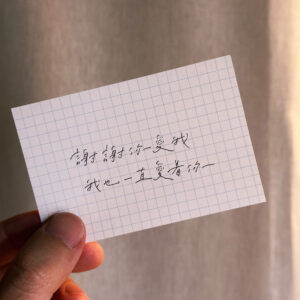 謝謝你愛我
我也一直愛著你